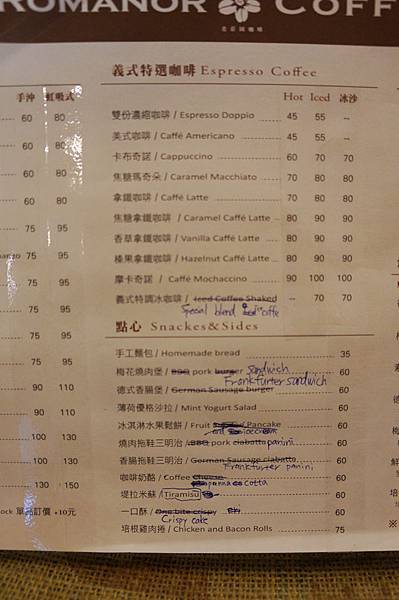 ROMANOR COFF
手沖 虹吸式
60 80
60 80
60 80
60 80
75 95
75 95
75 95
75 95
75 95
75 95
90 110
90 110
100 130
100 130
130 150
單品訂價 +10元
義式特選咖啡 Espresso Coffee
Hot Iced 冰沙
雙份濃縮咖啡 / Espresso Doppio 45 55 --
美式咖啡 / Caffé Americano 45 55 --
卡布奇諾 / Cappuccino 60 70 70
焦糖瑪奇朵 / Caramel Macchiato 70 80 80
拿鐵咖啡 / Caffé Latte 70 80 80
焦糖拿鐵咖啡 / Caramel Caffé Latte 80 90 90
香草拿鐵咖啡 / Vanilla Caffé Latte 80 90 90
榛果拿鐵咖啡 / Hazelnut Caffé Latte 80 90 90
摩卡奇諾 / Caffé Mochaccino 90 100 100
義式特調冰咖啡 / Iced Coffee Shaked -- 70 70
Special blend iced caffe
點心 Snackes&Sides
手工麵包 / Homemade bread 35
梅花燒肉堡 / BBQ pork burger sandwich 60
德式香腸堡 / German Sausage burger Frankfurter sandwich 60
薄荷優格沙拉 / Mint Yogurt Salad 60
冰淇淋水果鬆餅 / Fruit / Pancake 60
燒肉拖鞋三明治 / BBQ pork ciabatta panini 60
香腸拖鞋三明治 / German Sausage ciabatta 60
Frankfurter panini
咖啡奶酪 / Coffee 60
panna cotta
堤拉米蘇 / Tiramisu 60
一口酥 / One bite crispy 60
Crispy cake
培根雞肉捲 / Chicken and Bacon Rolls 75